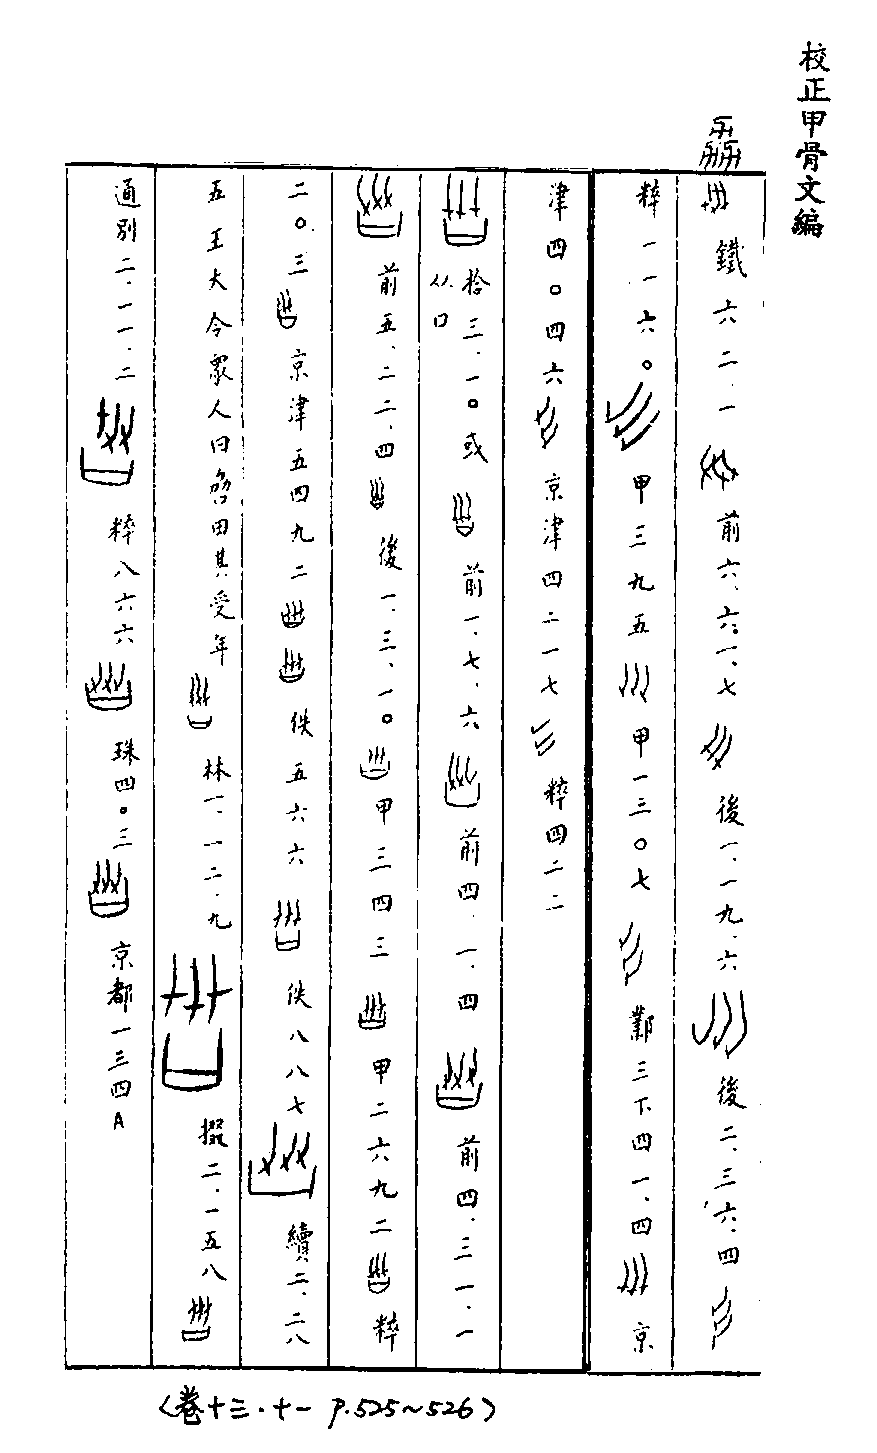 校正甲骨文編
劦
鐵六二.一 前六.六一.七 後一.一九.六 後二.三六.四
粹一一六〇 甲三九五 甲一三〇七 鄴三下四一.四 京
津四〇四六 京津四二一七 粹四二二
拾三.一〇或从口 前一.七.六 前四.一.四 前四.三一.一
前五.二二.四 後一.三.一〇 甲三四三 甲二六九二 粹
二〇三 京津五四九二 佚五六六 佚八八七 續二.二八
五王大令眾人曰劦田其受年 林一.一二.九 掇二.一五八
通別二.一一.二 粹八六六 珠四〇三 京都一三四A
(卷十三.十一 P.525~526)